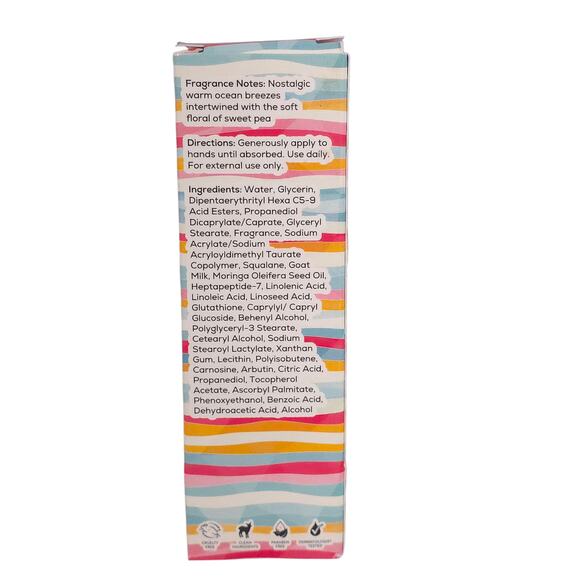 Fragrance Notes: Nostalgic
warm ocean breezes
intertwined with the soft
floral of sweet pea
Directions: Generously apply to
hands until absorbed. Use daily.
For external use only.
Ingredients: Water, Glycerin,
Dipentaerythrityl Hexa C5-9
Acid Esters, Propanediol
Dicaprylate/Caprate, Glyceryl
Stearate, Fragrance, Sodium
Acrylate/Sodium
Acryloyldimethyl Taurate
Copolymer, Squalane, Goat
Milk, Moringa Oleifera Seed Oil,
Heptapeptide-7, Linolenic Acid,
Linoleic Acid, Linoseed Acid,
Glutathione, Caprylyl/ Capryl
Glucoside, Behenyl Alcohol,
Polyglyceryl-3 Stearate,
Cetearyl Alcohol, Sodium
Stearoyl Lactylate, Xanthan
Gum, Lecithin, Polyisobutene,
Carnosine, Arbutin, Citric Acid,
Propanediol, Tocopherol
Acetate, Ascorbyl Palmitate,
Phenoxyethanol, Benzoic Acid,
Dehydroacetic Acid, Alcohol
CRUELTY FREE
CLEAN INGREDIENTS
PARABEN FREE
DERMATOLOGIST TESTED